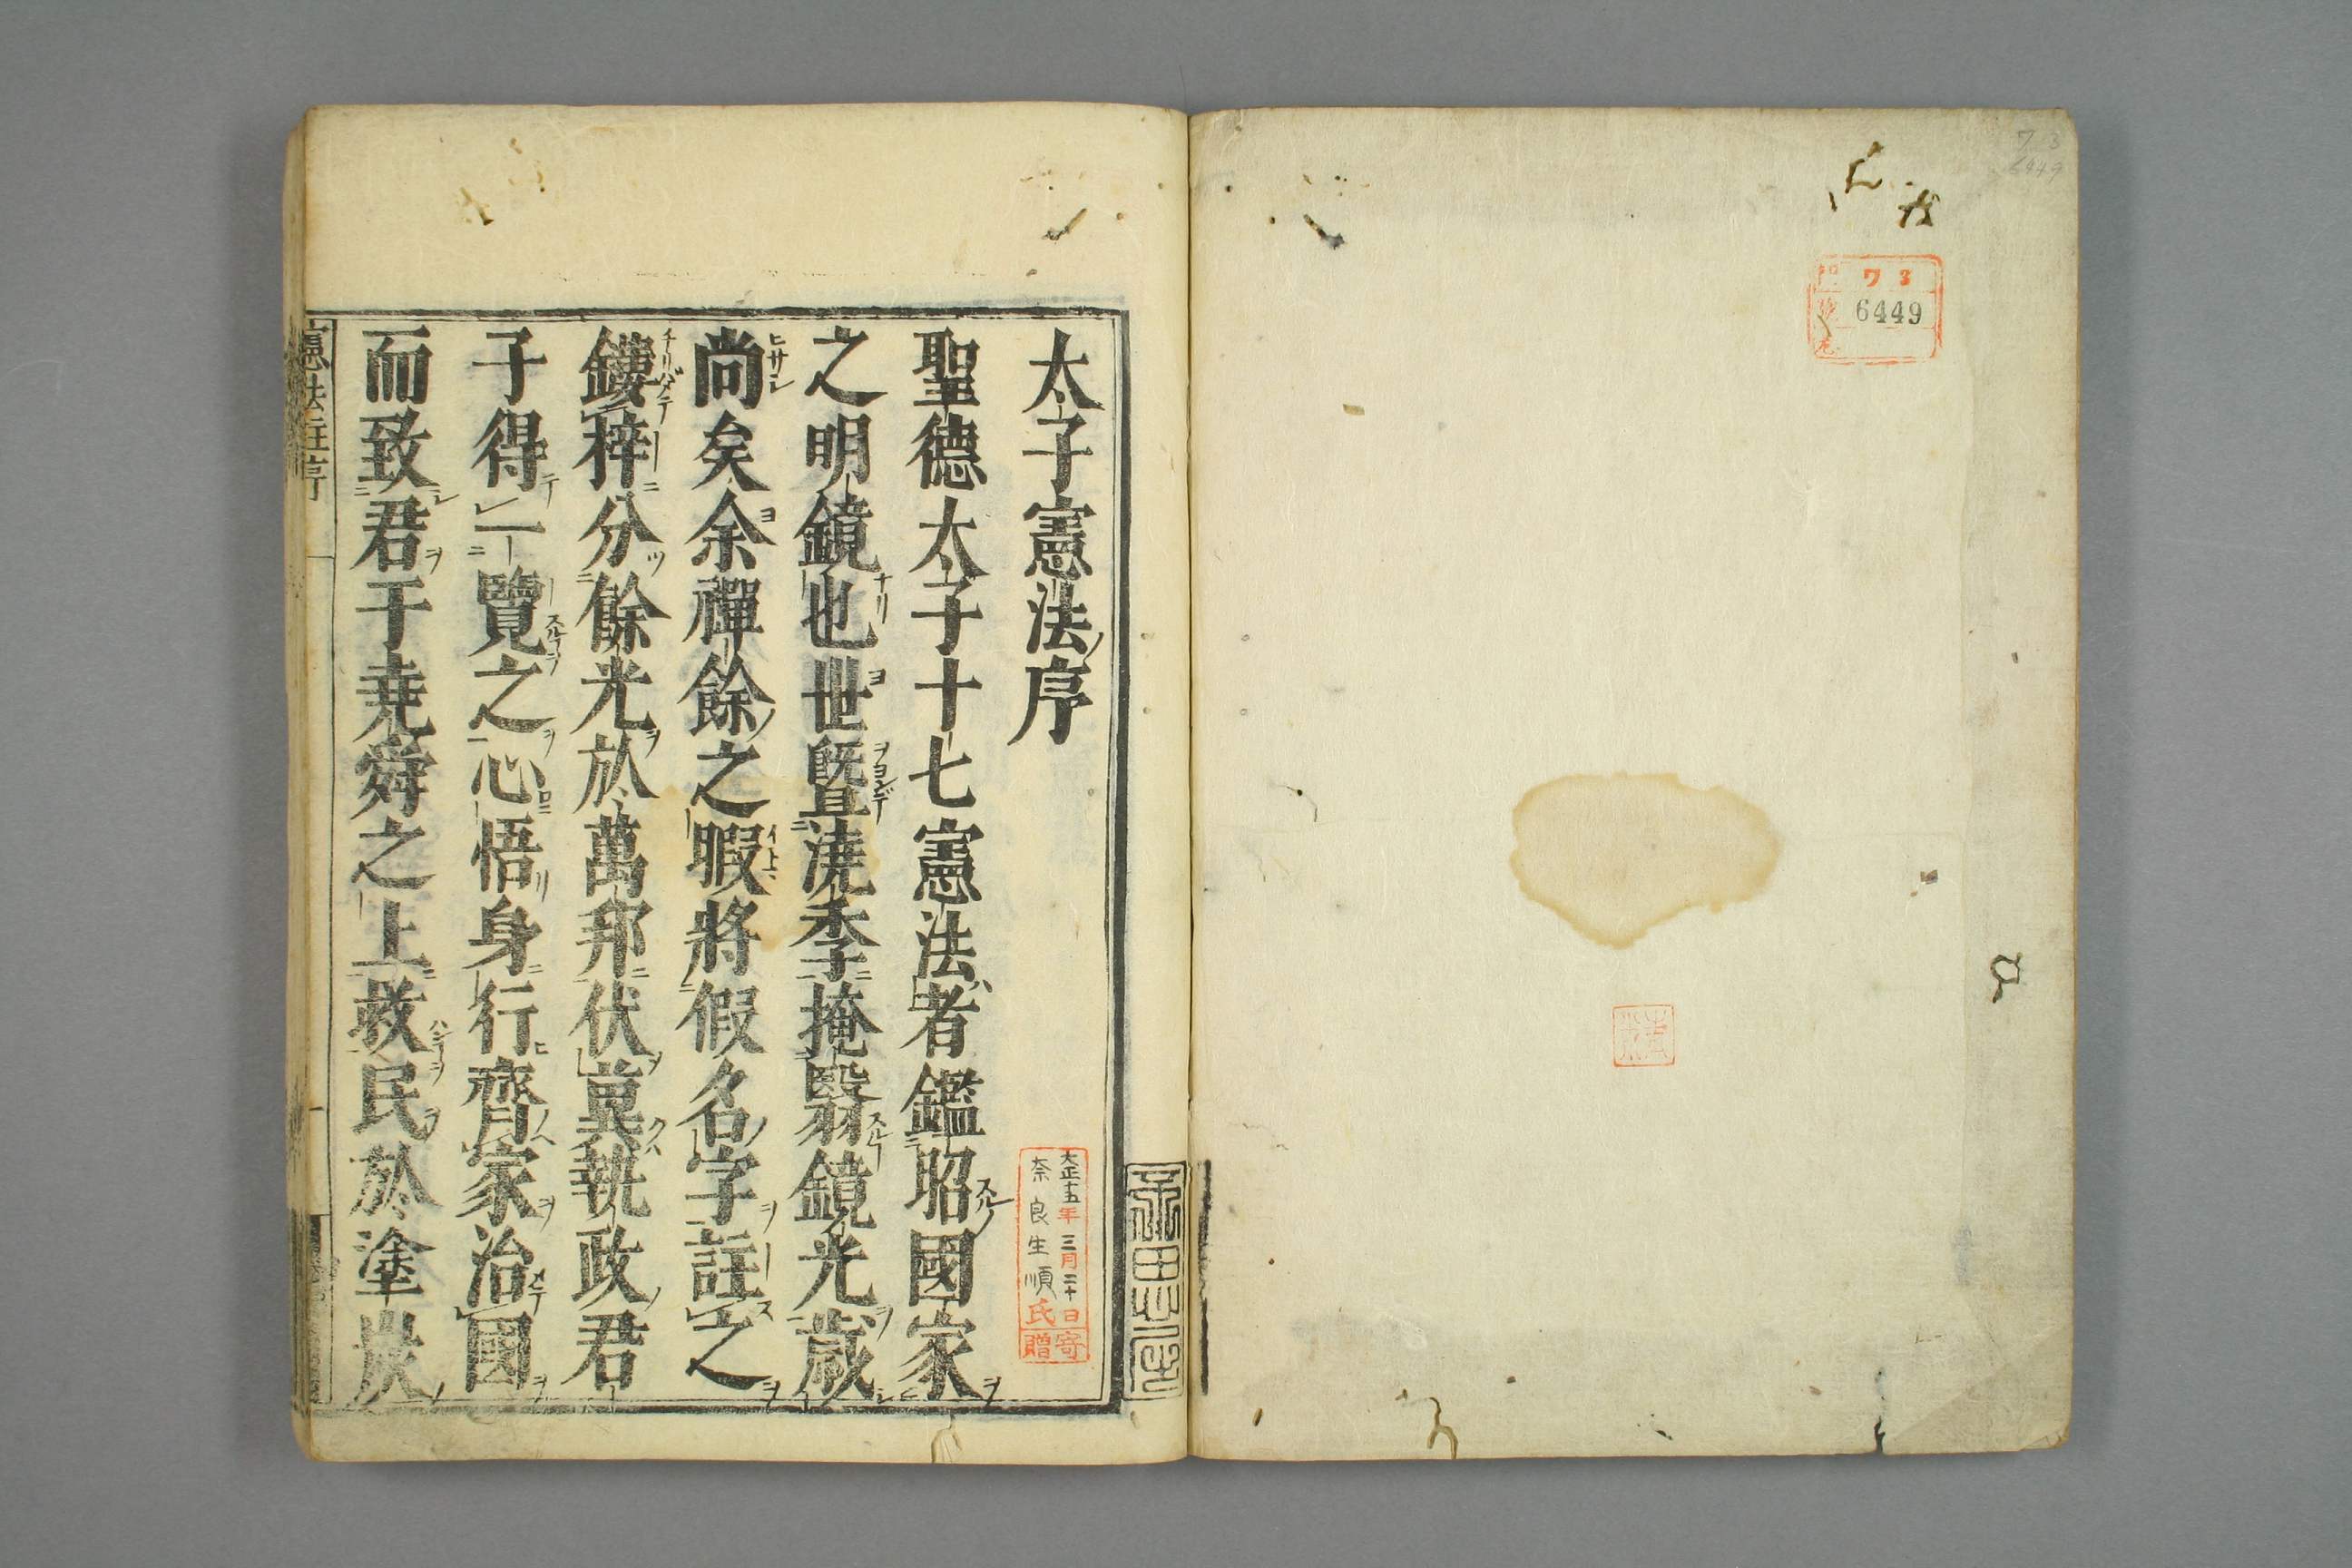 73
6449
73
6449
太子憲法ノ序
聖德太子十七憲法者鑑昭國家
之明鏡也世曁澆季掩翳鏡光歳
尚矣余禪餘之暇將假名字註之
鏤梓分餘光於萬邦伏冀執政君
子得一覽之心悟身行齊家治國
而致君于堯舜之上救民於塗炭
大正十五年三月二十日寄贈
奈良生順氏
憲法註序